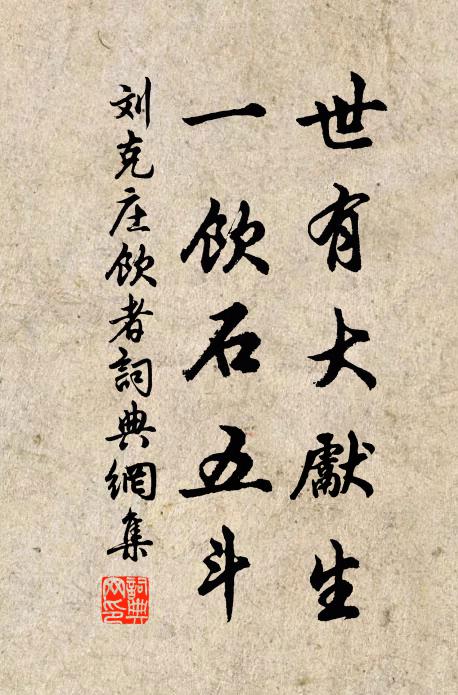 世有大獻生
一飲石五斗
刘克庄飲者詞典網集
詞典网印